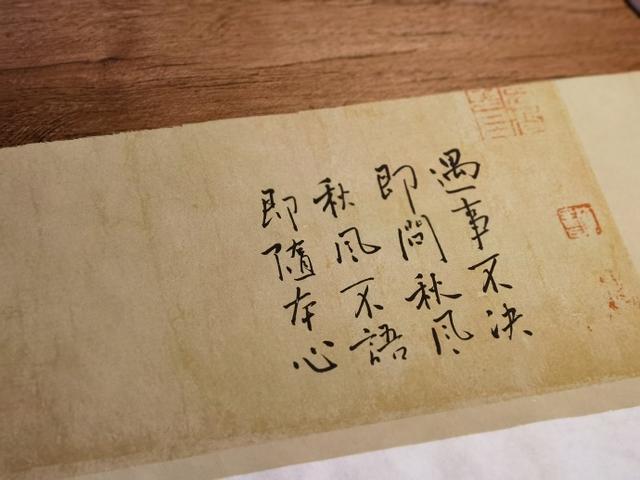 遇事不决
即問秋风
秋风不語
即隨本心